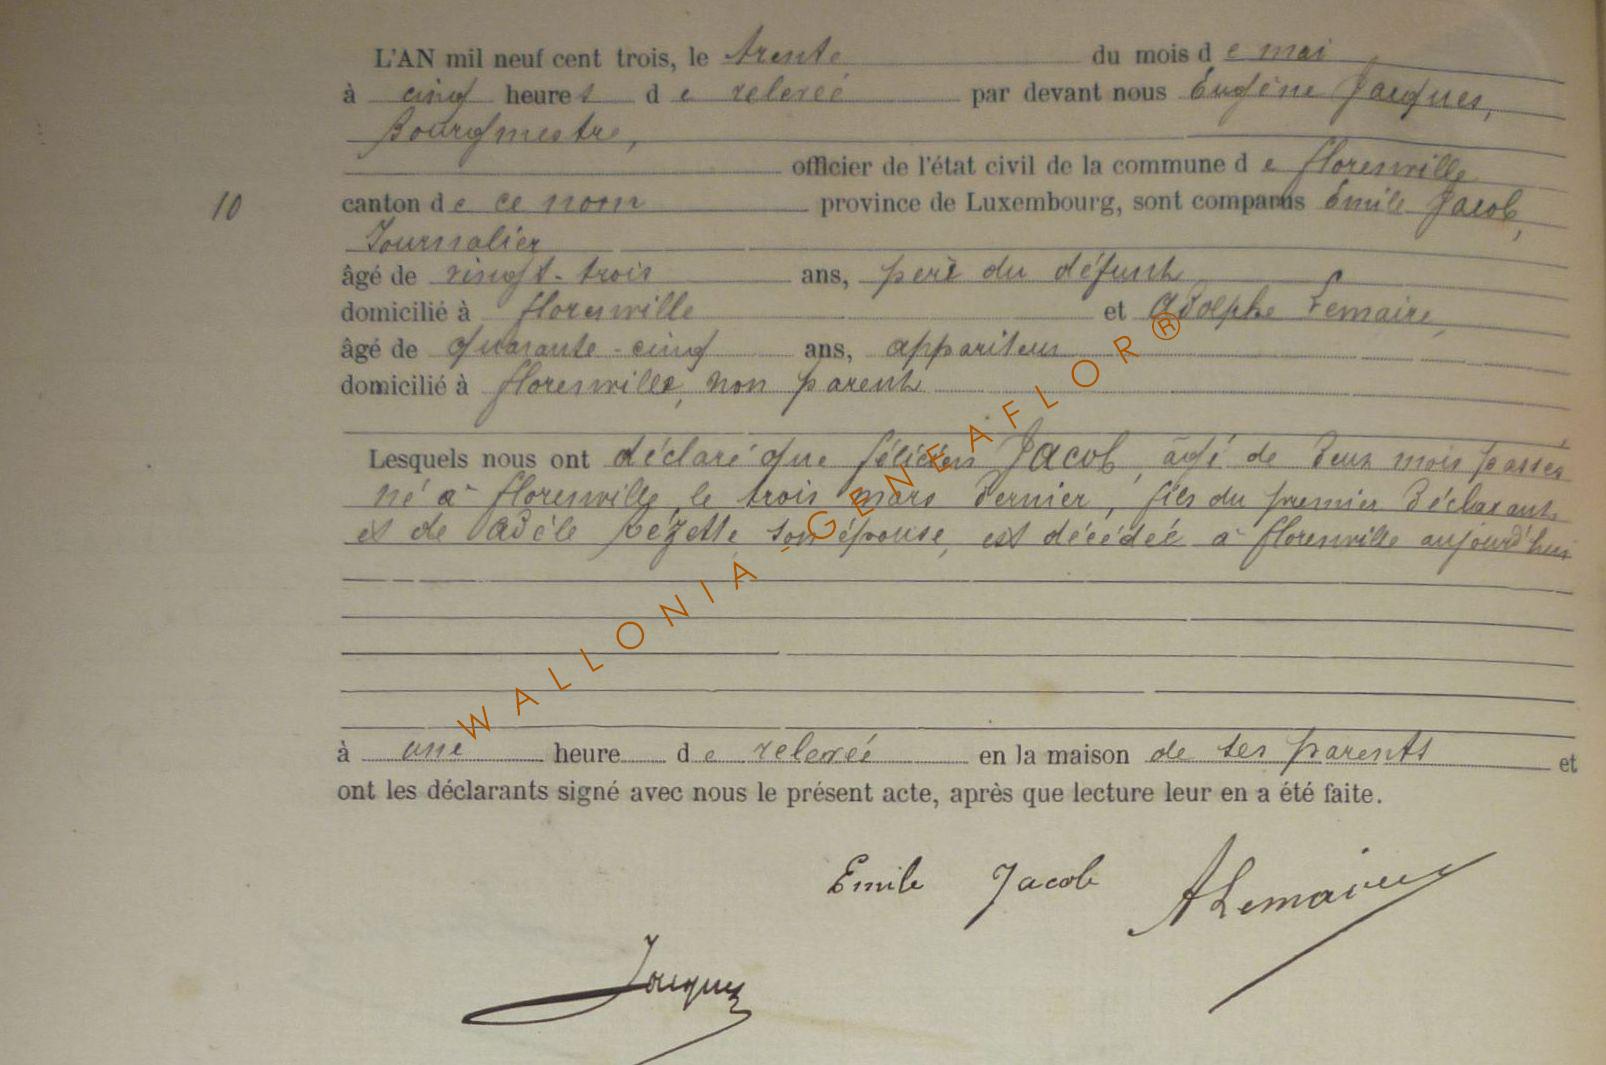 L'AN mil neuf cent trois, le trente du mois de mai
à cinq heures de relevée par devant nous Eugène Jacques,
Bourgmestre,
officier de l'état civil de la commune de Florenville
10
canton de ce nom province de Luxembourg, sont comparus Emile Jacob,
Journalier
âgé de vingt-trois ans, père du défunt
domicilié à Florenville et Adolphe Lemaire,
âgé de quarante-cinq ans, appariteur
domicilié à Florenville, non parent
Lesquels nous ont déclaré que Félicien Jacob, âgé de deux mois passés
né à Florenville, le trois mars dernier, fils du premier déclarant
et de Adèle Pézette son épouse, est décédée à Florenville aujourd'hui
à une heure de relevée en la maison de ses parents et
ont les déclarants signé avec nous le présent acte, après que lecture leur en a été faite.
Emile Jacob ALemaire
Jacques
WALLONIA - GENEAFLOR®